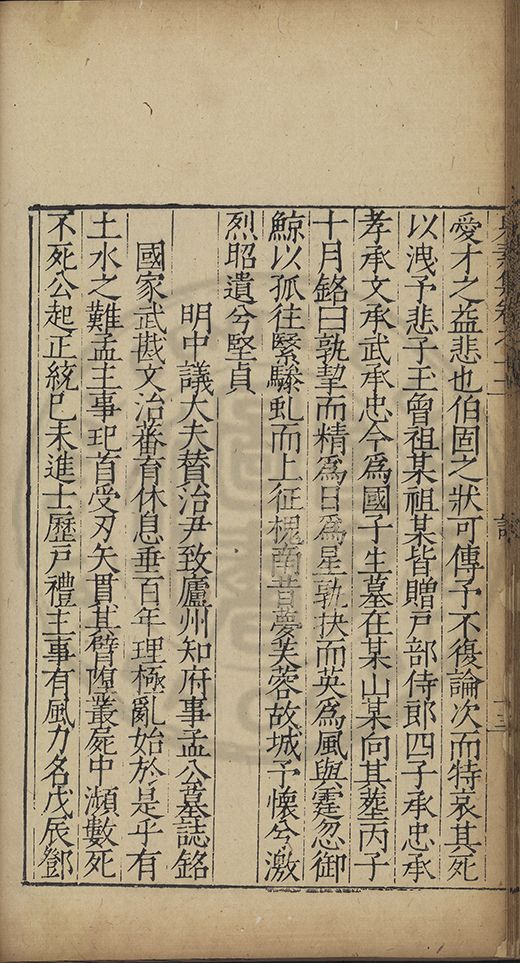 愛才之益悲也伯固之狀可傳予不復論次而特哀其死
以洩予悲子王曾祖某祖某皆贈戸部侍郎四子承忠承
孝承文承武承忠今爲國子生墓在某山某向其塟丙子
十月銘曰孰挚而精爲日爲星孰抉而英爲風與霆忽御
鯨以孤往緊驂虬而上征槐南昔夢芙蓉故城予懷兮激
烈昭遺兮堅貞
明中議大夫賛治尹致廬州知府事孟公墓誌銘
國家武戡文治蕃育休息垂百年理極亂始於是乎有
土水之難孟主事玘首受刃矢貫其臂墮叢屍中瀕數死
不死公起正統巳未進士歷戸禮主事有風力名戊辰鄧